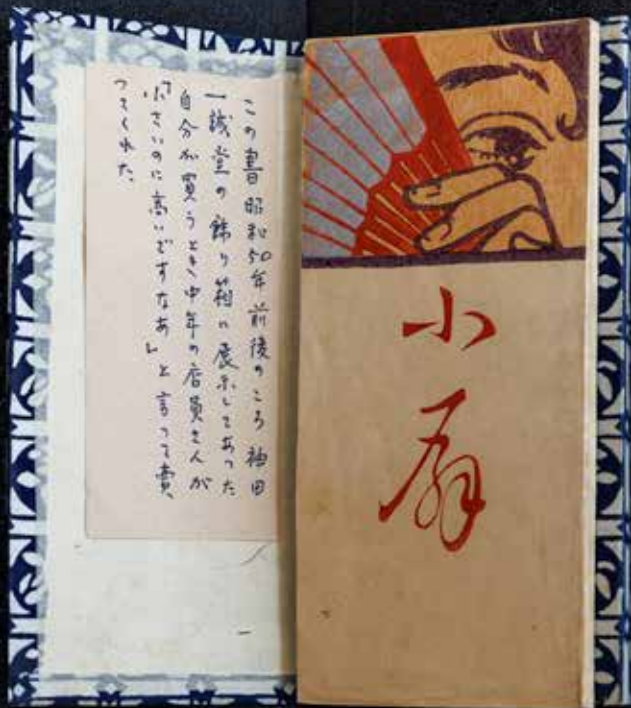 この書昭和50年前後のころ神田
一誠堂の飾り箱に展示してあった
自分が買うとき中年の店員さんが
「小さいのに高いですなあ」と言って売
ってくれた。
小扇